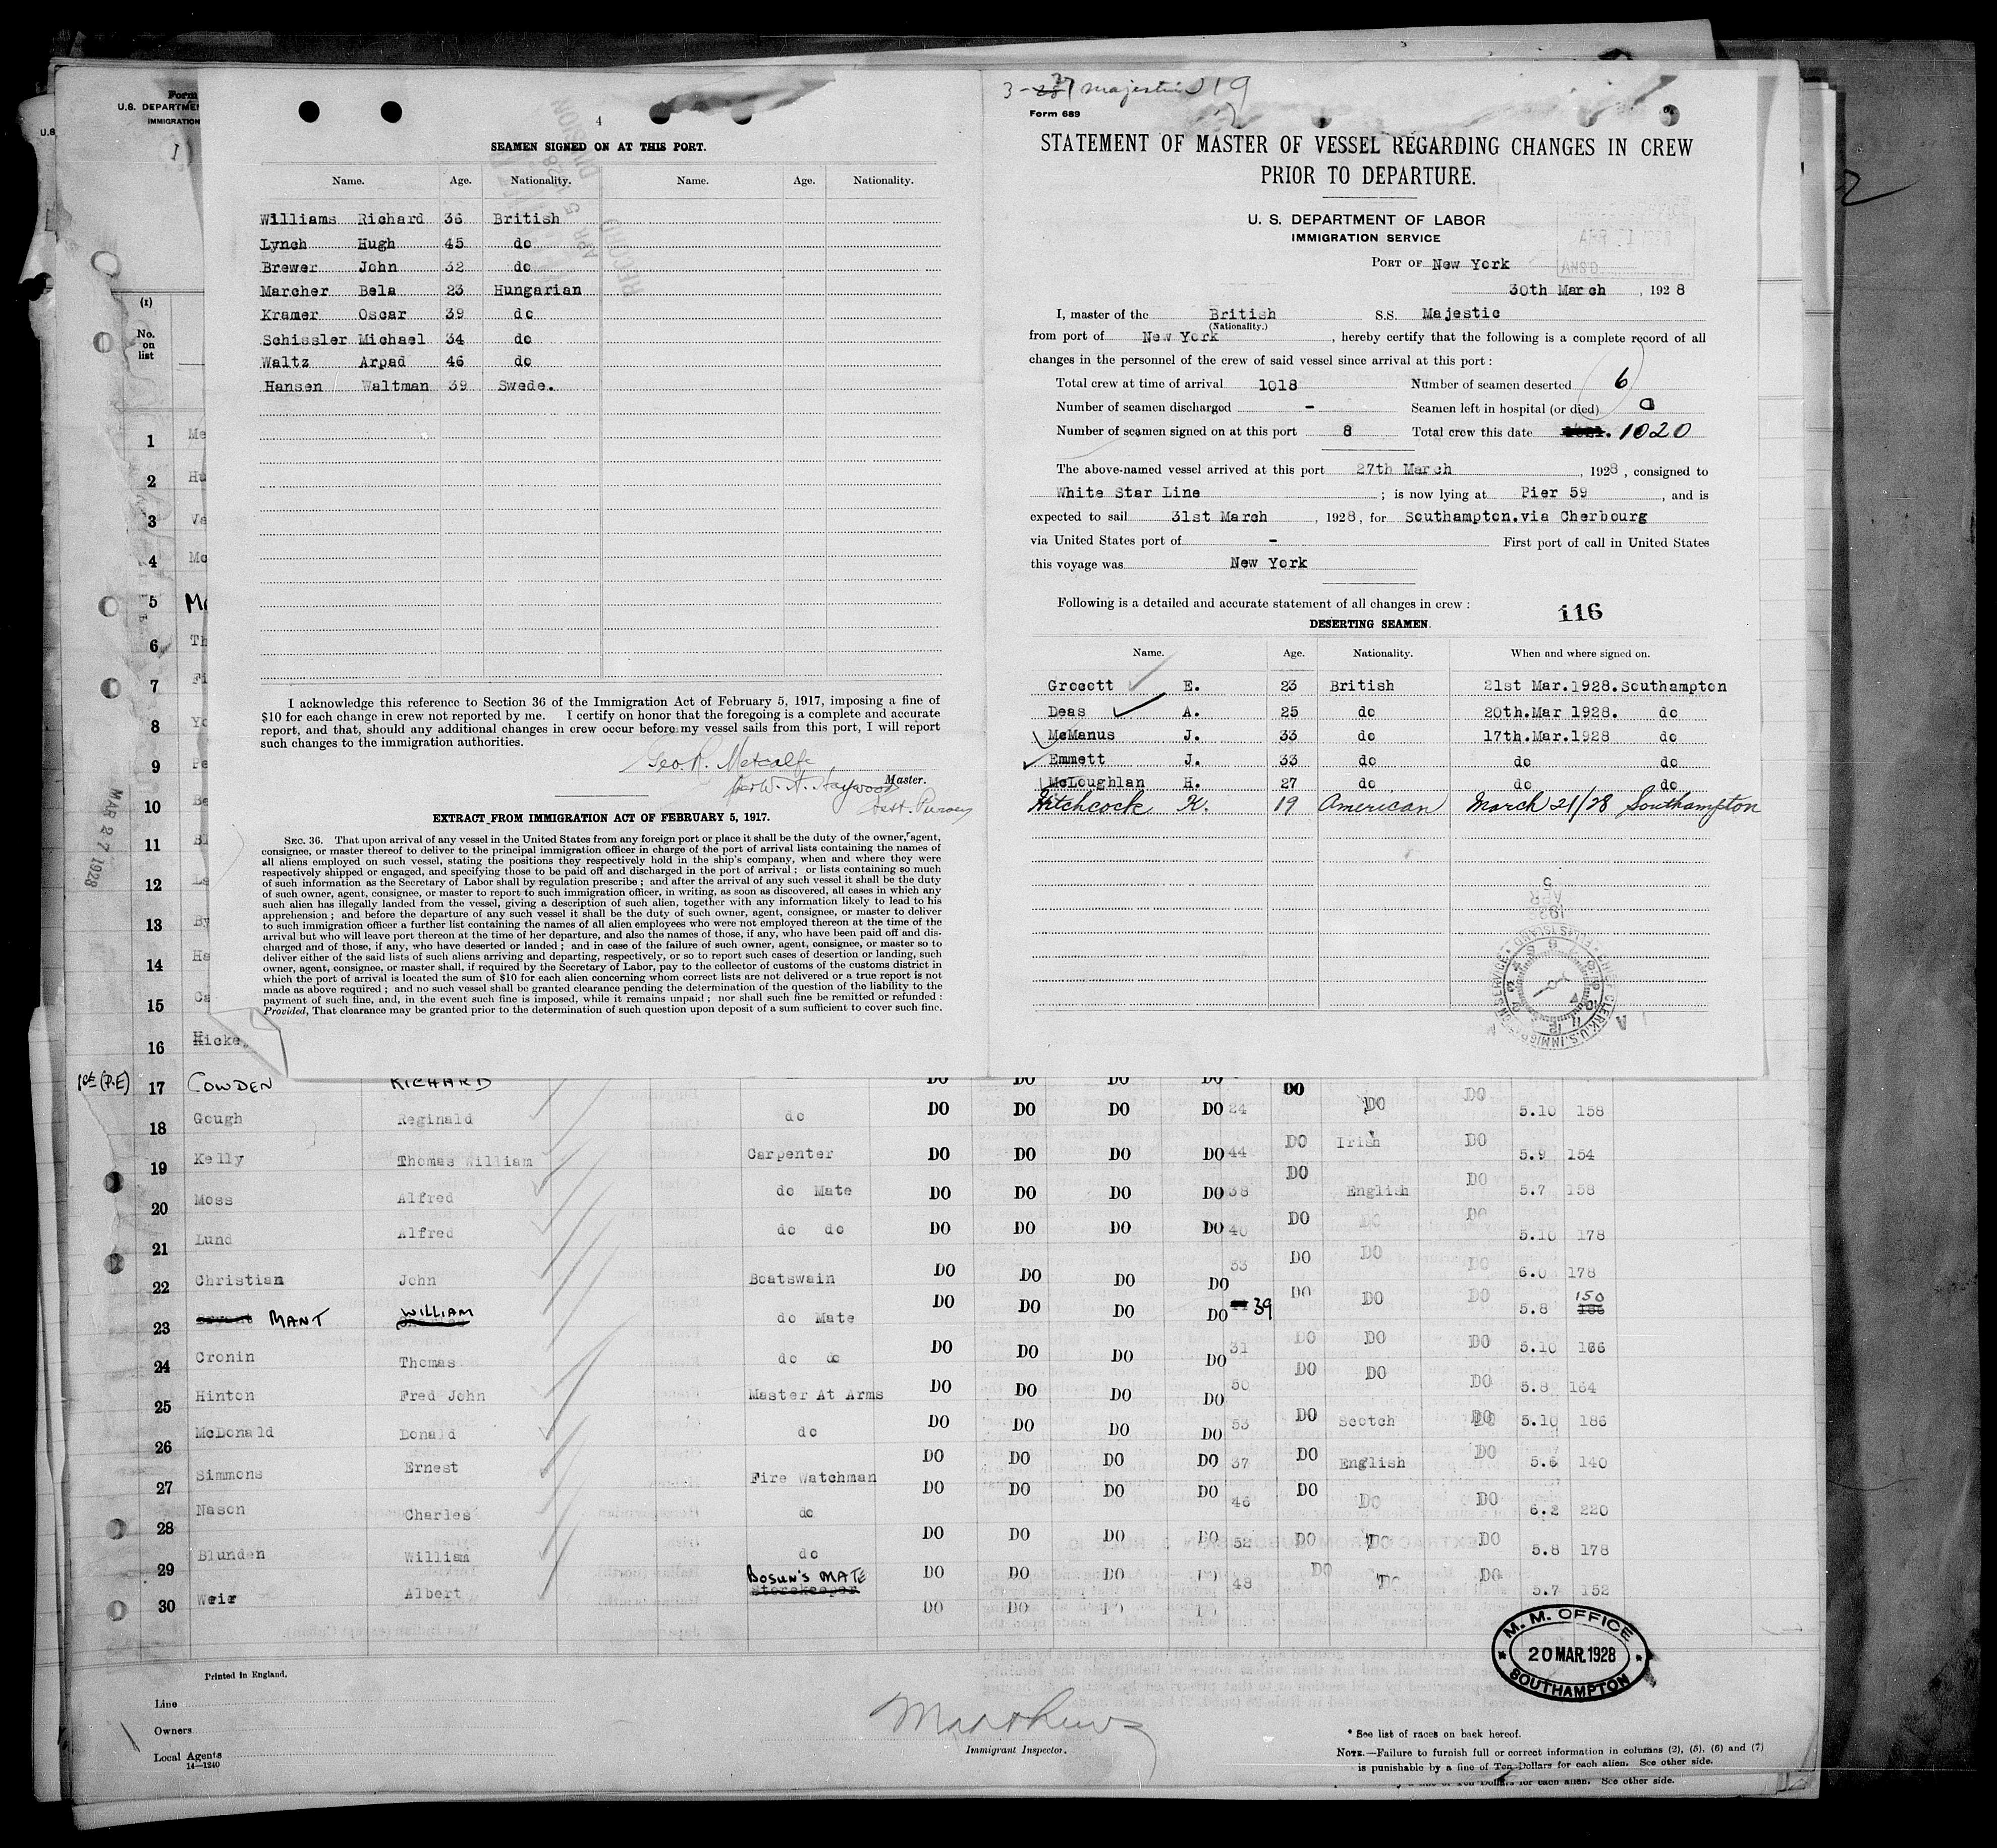 4
SEAMEN SIGNED ON AT THIS PORT.
Name. Age. Nationality. Name. Age. Nationality.
Williams Richard 36 British
Lynch Hugh 45 do
Brewer John 32 do
Marcher Bela 23 Hungarian
Kramer Oscar 39 do
Schissler Michael 34 do
Waltz Arpad 46 do
Hansen Waltman 39 Swede.
I acknowledge this reference to Section 36 of the Immigration Act of February 5, 1917, imposing a fine of
$10 for each change in crew not reported by me. I certify on honor that the foregoing is a complete and accurate
report, and that, should any additional changes in crew occur before my vessel sails from this port, I will report
such changes to the immigration authorities.
Geo. R. Metcalfe
Master.
EXTRACT FROM IMMIGRATION ACT OF FEBRUARY 5, 1917.
SEC. 36. That upon arrival of any vessel in the United States from any foreign port or place it shall be the duty of the owner, agent,
consignee, or master thereof to deliver to the principal immigration officer in charge of the port of arrival lists containing the names of
all aliens employed on such vessel, stating the positions they respectively hold in the ship's company, when and where they were
respectively shipped or engaged, and specifying those to be paid off and discharged in the port of arrival; or lists containing so much
of such information as the Secretary of Labor shall by regulation prescribe; and after the arrival of any such vessel it shall be the duty
of such owner, agent, consignee, or master to report to such immigration officer, in writing, as soon as discovered, all cases in which any
such alien has illegally landed from the vessel, giving a description of such alien, together with any information likely to lead to his
apprehension; and before the departure of any such vessel it shall be the duty of such owner, agent, consignee, or master to deliver
to such immigration officer a further list containing the names of all alien employees who were not employed thereon at the time of the
arrival but who will leave port thereon at the time of her departure, and also the names of those, if any, who have been paid off and dis-
charged and of those, if any, who have deserted or landed; and in case of the failure of such owner, agent, consignee, or master so to
deliver either of the said lists of such aliens arriving and departing, respectively, or so to report such cases of desertion or landing, such
owner, agent, consignee, or master shall, if required by the Secretary of Labor, pay to the collector of customs of the customs district in
which the port of arrival is located the sum of $10 for each alien concerning whom correct lists are not delivered or a true report is not
made as above required; and no such vessel shall be granted clearance pending the determination of the question of the liability to the
payment of such fine, and, in the event such fine is imposed, while it remains unpaid; nor shall such fine be remitted or refunded:
Provided, That clearance may be granted prior to the determination of such question upon deposit of a sum sufficient to cover such fine.
Majestic 19
Form 689
STATEMENT OF MASTER OF VESSEL REGARDING CHANGES IN CREW
PRIOR TO DEPARTURE.
U. S. DEPARTMENT OF LABOR
IMMIGRATION SERVICE
PORT OF New York
30th March, 1928
I, master of the British S.S. Majestic
(Nationality.)
from port of New York, hereby certify that the following is a complete record of all
changes in the personnel of the crew of said vessel since arrival at this port:
Total crew at time of arrival 1018 Number of seamen deserted 6
Number of seamen discharged - Seamen left in hospital (or died) 0
Number of seamen signed on at this port 8 Total crew this date 1020
The above-named vessel arrived at this port 27th March, 1928, consigned to
White Star Line; is now lying at Pier 59, and is
expected to sail 31st March, 1928, for Southampton.via Cherbourg
via United States port of - First port of call in United States
this voyage was New York
Following is a detailed and accurate statement of all changes in crew:
116
DESERTING SEAMEN.
Name. Age. Nationality. When and where signed on.
Grocott E. 23 British 21st Mar.1928.Southampton
Deas A. 25 do 20th.Mar 1928. do
McManus J. 33 do 17th.Mar.1928 do
Emmett J. 33 do do do
McLoughlan H. 27 do do do
Hitchcock K. 19 American March 21/28 Southampton
Form
U.S. DEPARTME
IMMIGRATION
(1)
No. on list
1 Me
2 Hu
3 Va
4 Mc
5 Ma
6 Th
7 Fi
8 Yo
9 Pe
10 Be
11 Bl
12 Le
13 By
14 Ha
15 Ca
16 Hicke
MAR 27 1928
17 COWDEN RICHARD DO DO DO DO DO
18 Gough Reginald do DO DO DO DO 24 DO DO 5.10 158
19 Kelly Thomas William Carpenter DO DO DO DO 44 DO Irish DO 5.9 154
20 Moss Alfred do Mate DO DO DO DO 38 DO English DO 5.7 158
21 Lund Alfred do do DO DO DO DO 40 DO DO DO 5.10 178
22 Christian John Boatswain DO DO DO DO 53 DO DO DO 6.0 178
23 MANT WILLIAM do Mate DO DO DO DO 39 DO DO DO 5.8 150
24 Cronin Thomas do do DO DO DO DO 31 DO DO DO 5.10 166
25 Hinton Fred John Master At Arms DO DO DO DO 50 DO DO DO 5.8 164
26 McDonald Donald do DO DO DO DO 53 DO Scotch DO 5.10 186
27 Simmons Ernest Fire Watchman DO DO DO DO 37 DO English DO 5.6 140
28 Nason Charles do DO DO DO DO 46 DO DO DO 6.2 220
29 Blunden William do DO DO DO DO 52 DO DO DO 5.8 178
30 Weir Albert BOSUN'S MATE Storekeeper DO DO DO DO 48 DO DO DO 5.7 152
DO DO DO DO
M. M. OFFICE
20 MAR.1928
SOUTHAMPTON
Printed in England.
Line
Owners
Local Agents
14—1240
Matthews
Immigrant Inspector.
* See list of races on back hereof.
NOTE.—Failure to furnish full or correct information in columns (2), (5), (6) and (7)
is punishable by a fine of Ten Dollars for each alien. See other side.